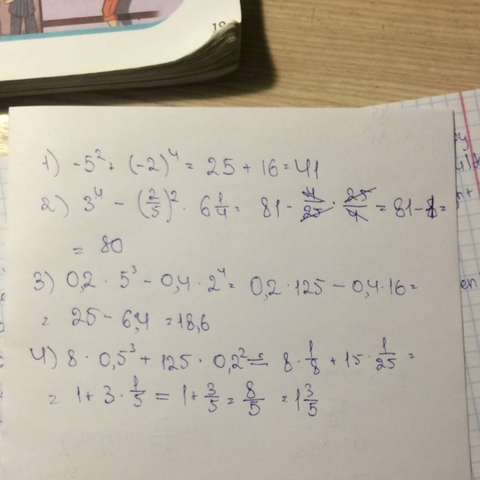 1) -5² + (-2)⁴ = 25 + 16 = 41
2) 3⁴ - (2/5)² · 6 1/4 = 81 - 4/25 · 25/4 = 81 - 1 =
= 80
3) 0,2 · 5³ - 0,4 · 2⁴ = 0,2 · 125 - 0,4 · 16 =
= 25 - 6,4 = 18,6
4) 8 · 0,5³ + 125 · 0,2² = 8 · 1/8 + 15 · 1/25 =
= 1 + 3 · 1/5 = 1 + 3/5 = 8/5 = 1 3/5